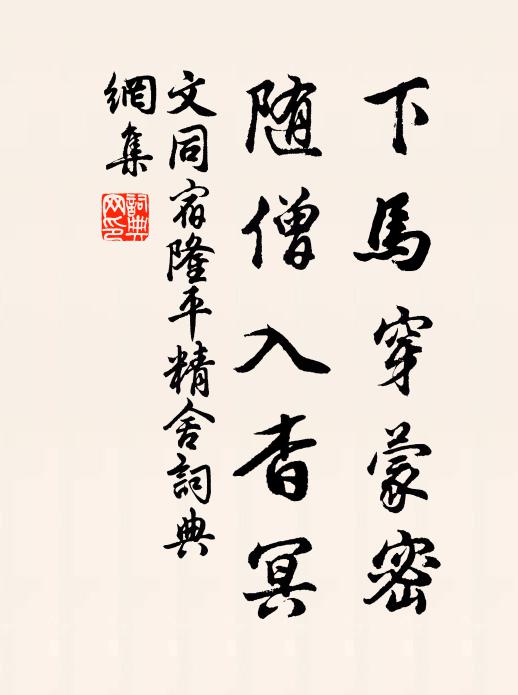 下馬穿蒙密
随僧入杳冥
文同宿隆平精舍詞典
網集
詞典
网印